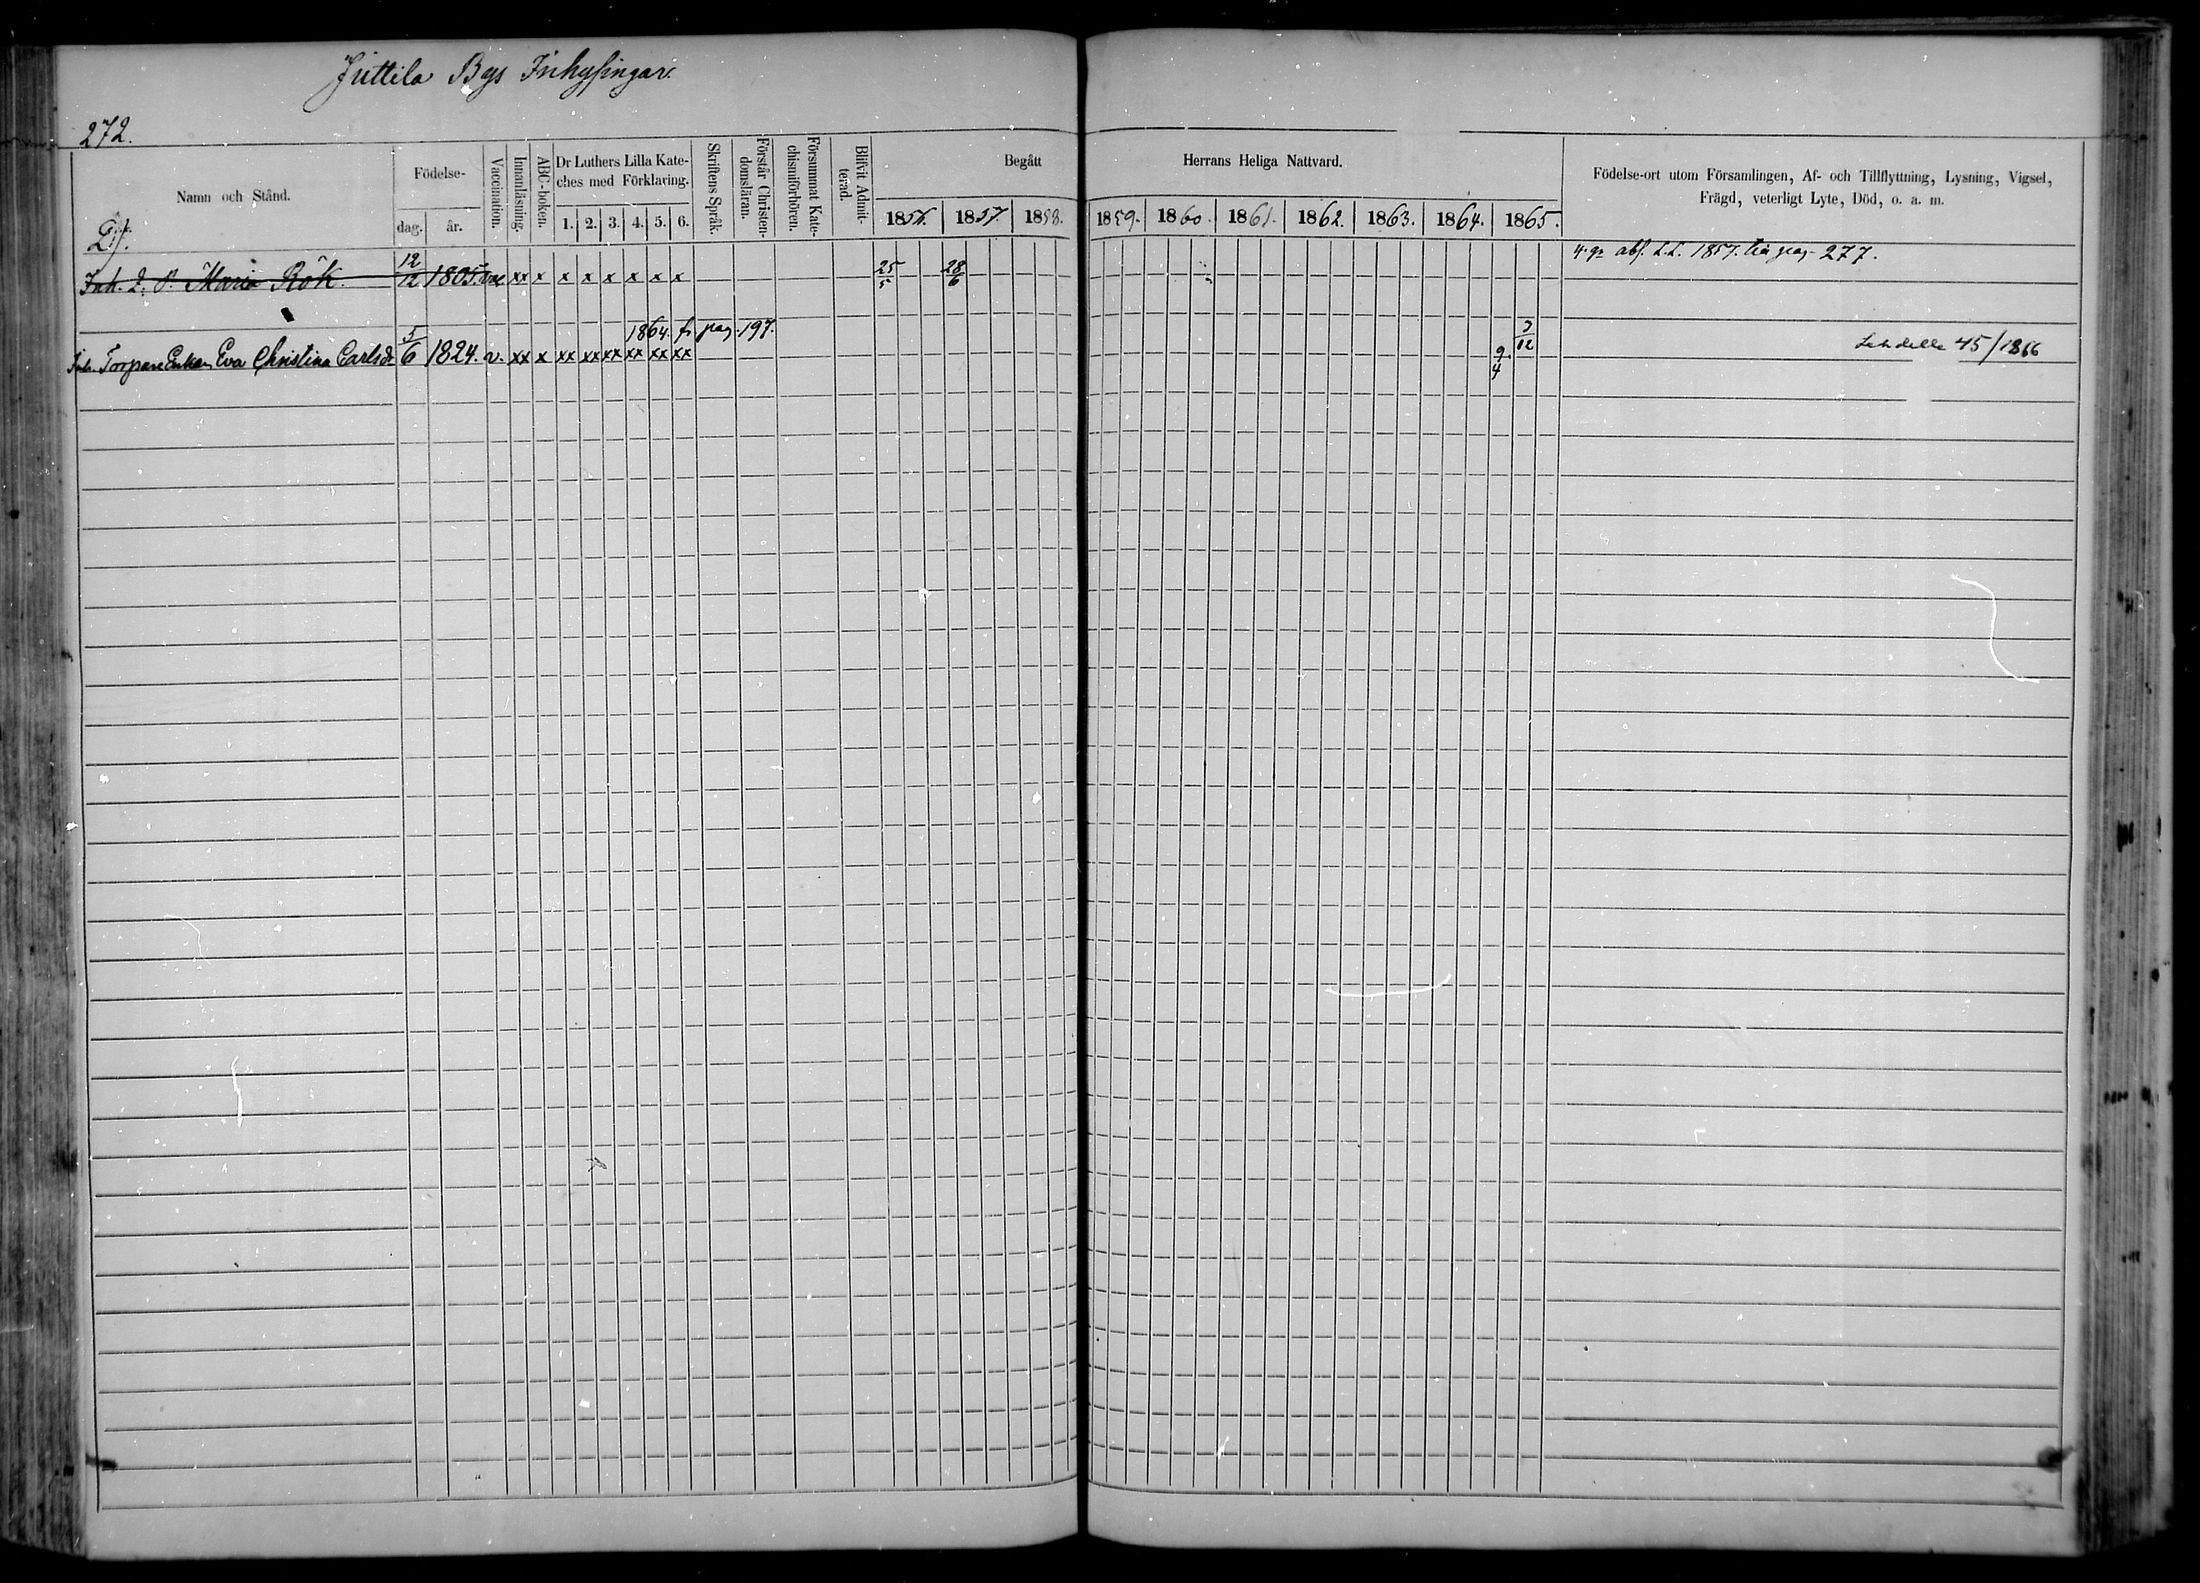 Juttila Bys Inhysingar.
272.
Namn och Stånd.
Födelse-
dag. år.
Vaccination.
Innanläsning.
ABC-boken.
Dr Luthers Lilla Kate-
ches med Förklaring.
1. 2. 3. 4. 5. 6.
Skriftens Språk.
Förstår Christen-
domsläran.
Försummat Kate-
chismiförhören.
Blifvit Admit-
terad.
Begått Herrans Heliga Nattvard.
1856. 1857. 1858. 1859. 1860. 1861. 1862. 1863. 1864. 1865.
Födelse-ort utom Församlingen, Af- och Tillflyttning, Lysning, Vigsel,
Frägd, veterligt Lyte, Död, o. a. m.
Inh. Maria Rök. 12/12 1805. xx x x x x x x x 25/5 28/6 abs. 1857. pag. 277.
1864. fr. pag. 197.
Inh. Torpare Enkan Eva Christina Carlsdr 5/6 1824. v. xx x xx xx xx xx xx xx 9/4 3/12 45/1866